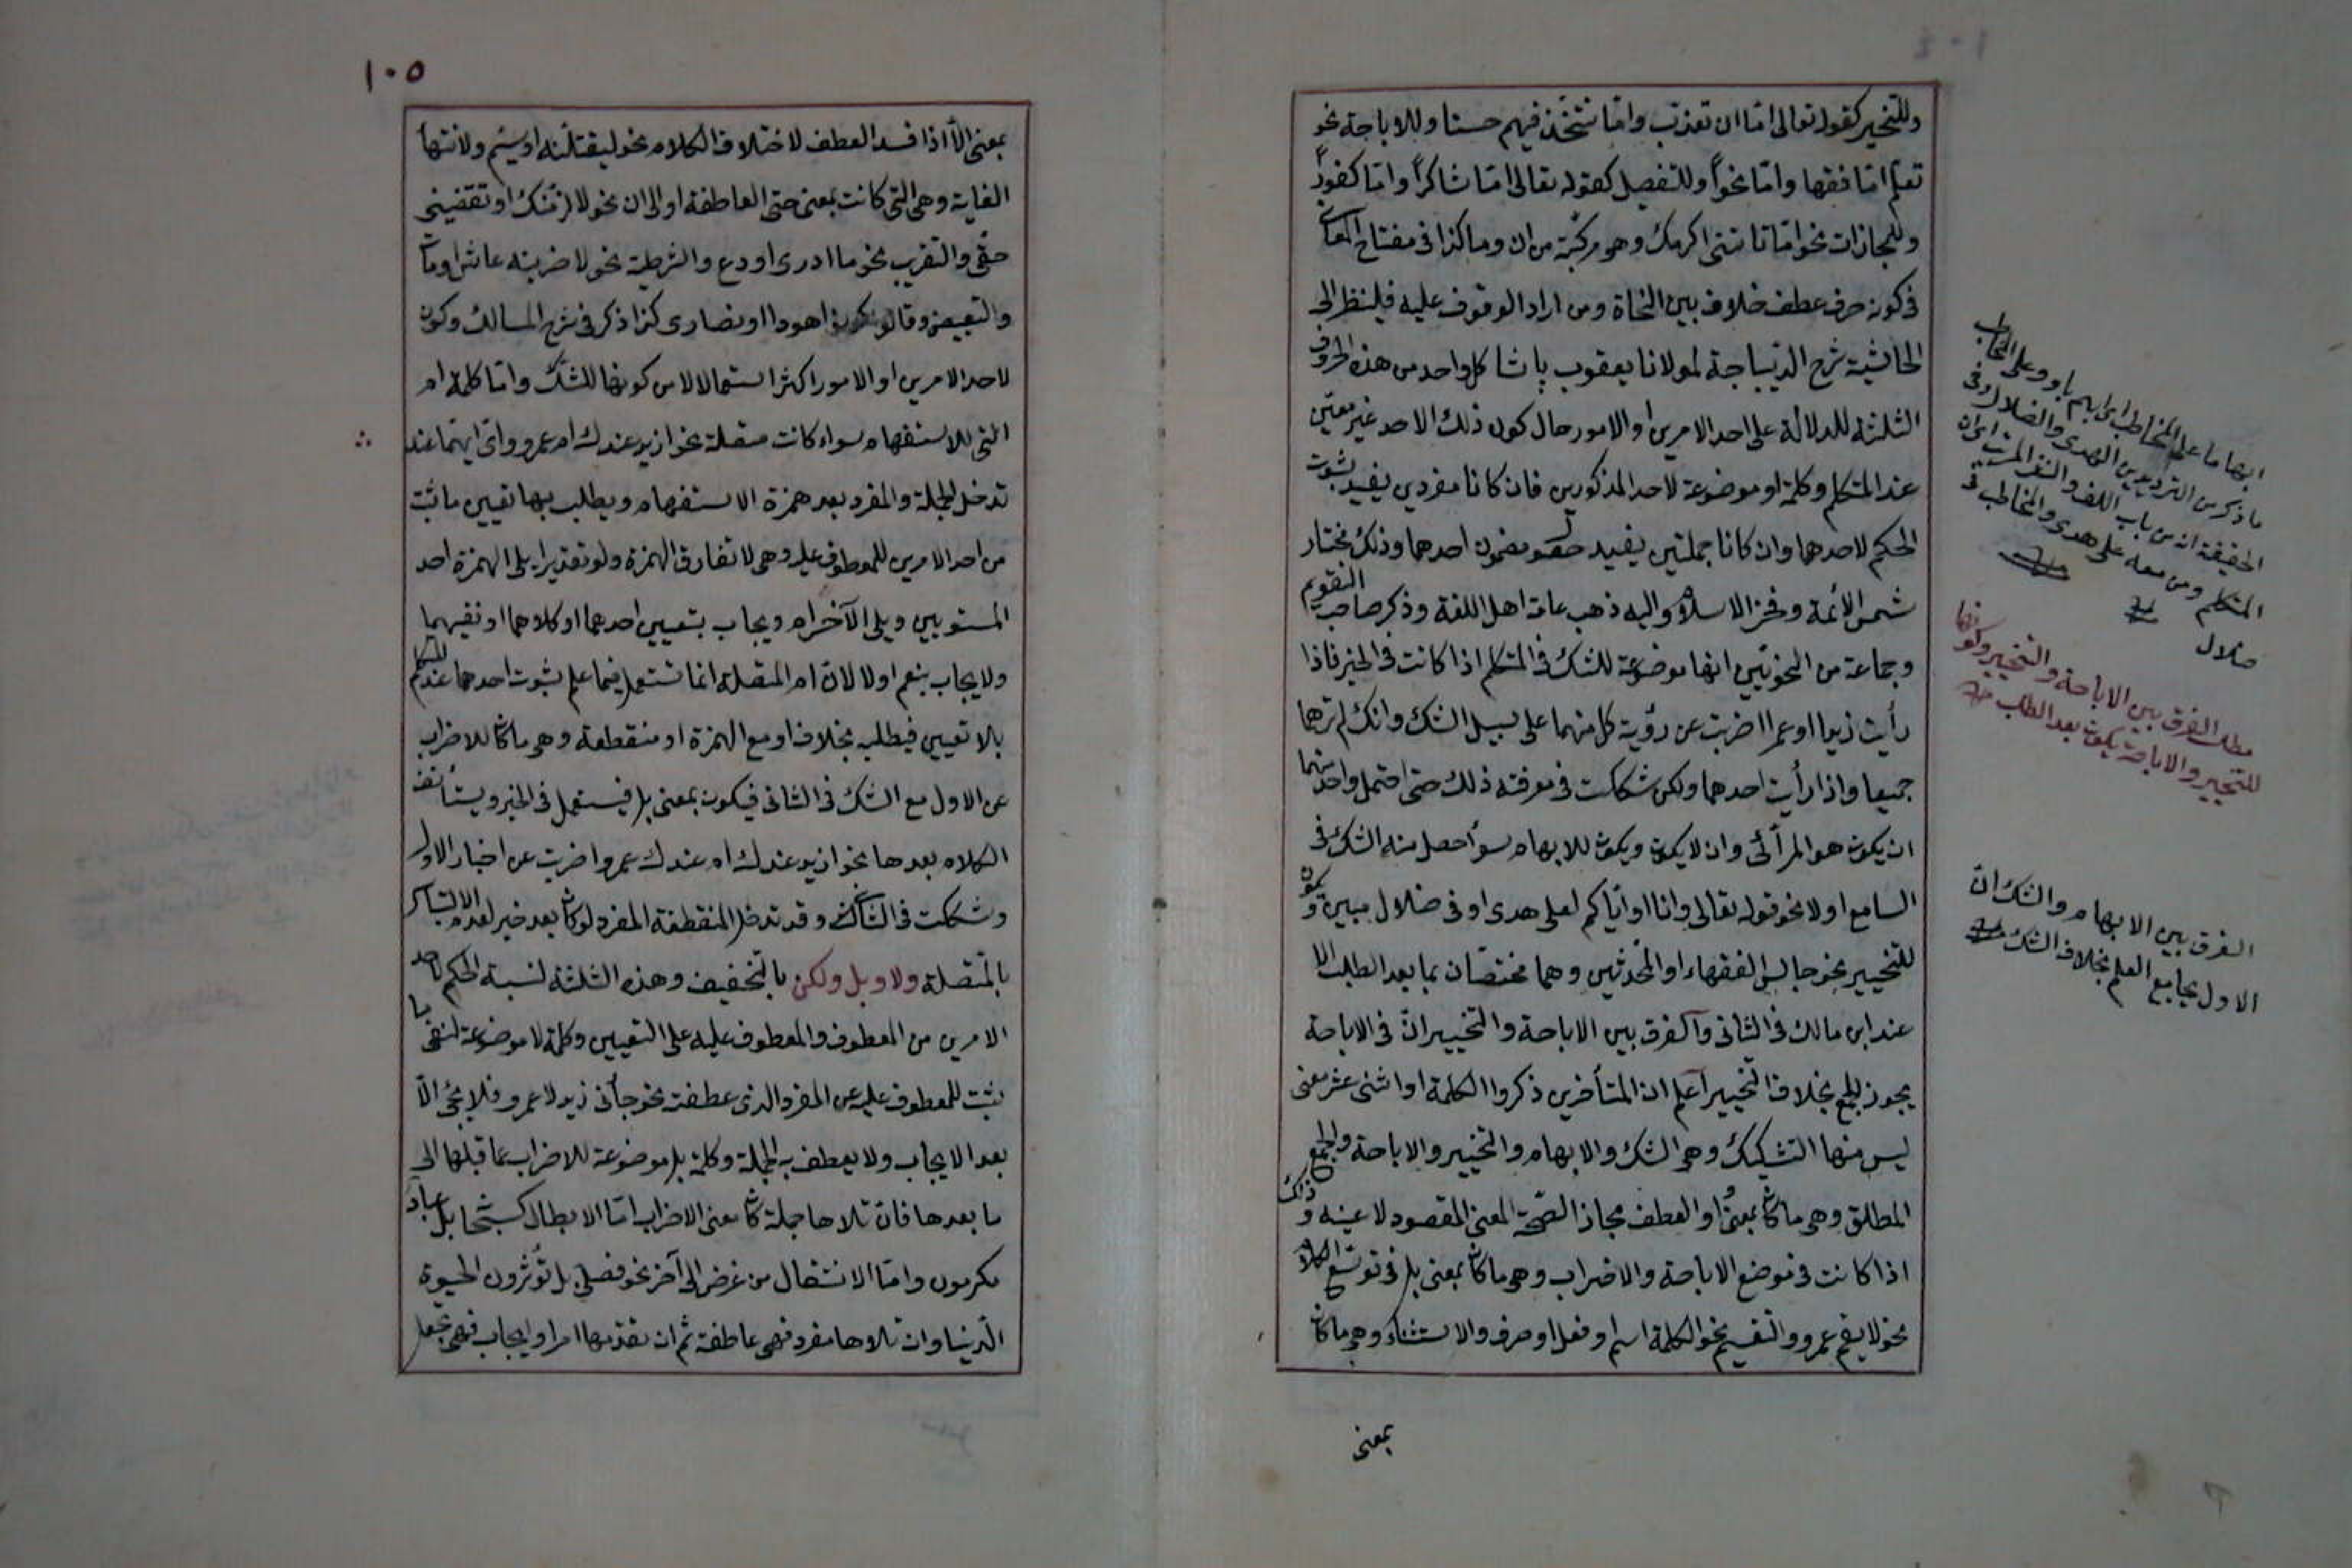 وللتخيير كقوله تعالى امّا ان تعذب وامّا تتخذ فيهم حسنا وللاباحة نحو
تعلّم امّا فقها وامّا نحواً وللتفصيل كقوله تعالى امّا شاكراً وامّا كفوراً
وللمجازات نحو امّا تأتنى اكرمك وهو مركبة من ان وما كذا فى مفتاح
فى كونه حرف عطف خلاف بين النحاة ومن اراد الوقوف عليه فلينظر الى
الحاشية شرح الديباجة لمولانا يعقوب پاشا كل واحد من هذه الحروف
الثلثة للدلالة على احد الامرين او الامور حال كون ذلك الاحد غير معيّن
عند المتكلم وكلمة او موضوعة لاحد المذكورين فان كانا مفردين يفيد ثبوت
الحكم لاحدهما وان كانا جملتين يفيد حصول مضمون احدهما وذلك مختار
شمس الأئمة وفخر الاسلام واليه ذهب عامة اهل اللغة وذكر صاحب التقويم
وجماعة من النحويّين انها موضوعة للشك فى المتكلم اذا كانت فى الخبر فاذا
رأيت زيدا او عمرا اخبرت عن رؤية كل منهما على سبيل الشك وانك لم ترهما
جميعا واذا رأيت احدهما ولكن شككت فى معرفة ذلك حتى احتمل واحد منهما
ان يكون هو المرأئى وان لا يكون ويكون للابهام سوأ حصل منه الشك فى
السامع اولا نحو قوله تعالى وانا او اياكم لعلى هدى او فى ضلال مبين ويكون
للتخيير نحو جالس الفقهاء او المحدثين وهما مختصّان بما بعد الطلب الا
عند ابن مالك فى الثانى والفرق بين الاباحة والتخيير انّ فى الاباحة
يجوز الجمع بخلاف التخيير اعلم ان المتأخرين ذكروا الكلمة او اثنى عشر معنى
ليس منها التشكيك وهى الشك والابهام والتخيير والاباحة والجمع
المطلق وهى ما كان بمعنى واو العطف مجاز الصّحة المعنى المقصود لا عينه وذلك
اذا كانت فى موضع الاباحة والاضراب وهى ما كان بمعنى بل فى توسّع الكلام
نحو لا يقم عمرو والتقسيم نحو الكلمة اسم او فعل او حرف والاستثناء وهى ما كان
بمعنى
ابهاما على المخاطب
ما ذكر من الترديد بين الهدى والضلال وفى
الحقيقة انه من باب اللف والنشر المرتب
المتكلم ومن معه على هدى والمخاطب فى
ضلال
مطلب الفرق بين الاباحة والتخيير
للتخيير والاباحة يكون بعد الطلب
الفرق بين الابهام والشك انّ
الاول يجامع العلم بخلاف الشك
١٠٥
بمعنى الاّ اذا فسد العطف لاختلاف الكلام نحو ليقتلنه او يسلم ولانتهاء
الغاية وهى التى كانت بمعنى حتى العاطفة او الى ان نحو لالزمنك او تقضينى
حقّى والتقريب نحو ما ادرى او دع والشرطية نحو لاضربنه عاش او مات
والتبعيض وقالوا كونوا هودا او نصارى كذا ذكر فى شرح المسالك وكون
لاحد الامرين او الامور اكثر استعمالا لا من كونها للشكّ وامّا كلمة ام
التى للاستفهام سواء كانت متصلة نحو ازيد عندك ام عمرو واى ايهما عند
تدخل الجملة والمفرد بعد همزة الاستفهام ويطلب بها تعيين ما ثبت
من احد الامرين للمعطوف عليه وهى لا تفارق الهمزة ولو تقديرا يلى الهمزة احد
المستويين ويلى الآخر ام ويجاب بتعيين احدهما او كلاهما او نفيهما
ولا يجاب بنعم او لا لانّ ام المتصلة انما تستعمل فيما علم ثبوت احدهما عند المتكلم
بلا تعيين فيطلب بخلاف او مع الهمزة او منقطعة وهى ما كان للاضراب
عن الاول مع الشك فى الثانى فيكون بمعنى بل فيستعمل فى الخبر ويستأنف
الكلام بعدها نحو ازيد عندك ام عندك عمرو اضربت عن اخبار الاول
وشككت فى الثانى وقد تدخل المنقطعة المفرد لو كان بعد خبر لعدم الالتباس
بالمتصلة ولا وبل ولكن بالتخفيف وهذه الثلثة لنسبة الحكم لاحد
الامرين من المعطوف والمعطوف عليه على التعيين وكلمة لا موضوعة لنفى ما
يثبت للمعطوف عليه عن المفرد الذى عطفته نحو جأنى زيد لا عمرو فلا يجئ الاّ
بعد الايجاب ولا يعطف به الجملة وكلمة بل موضوعة للاضراب عما قبلها الى
ما بعدها فان تلاها جملة كان معنى الاضراب امّا الابطال كسبحانه بل عباد
مكرمون وامّا الانتقال من غرض الى آخر نحو فصلى بل تؤثرون الحيوة
الدنيا وان تلاها مفرد فهى عاطفة ثم ان تقدمها امر او ايجاب فهى تجعل